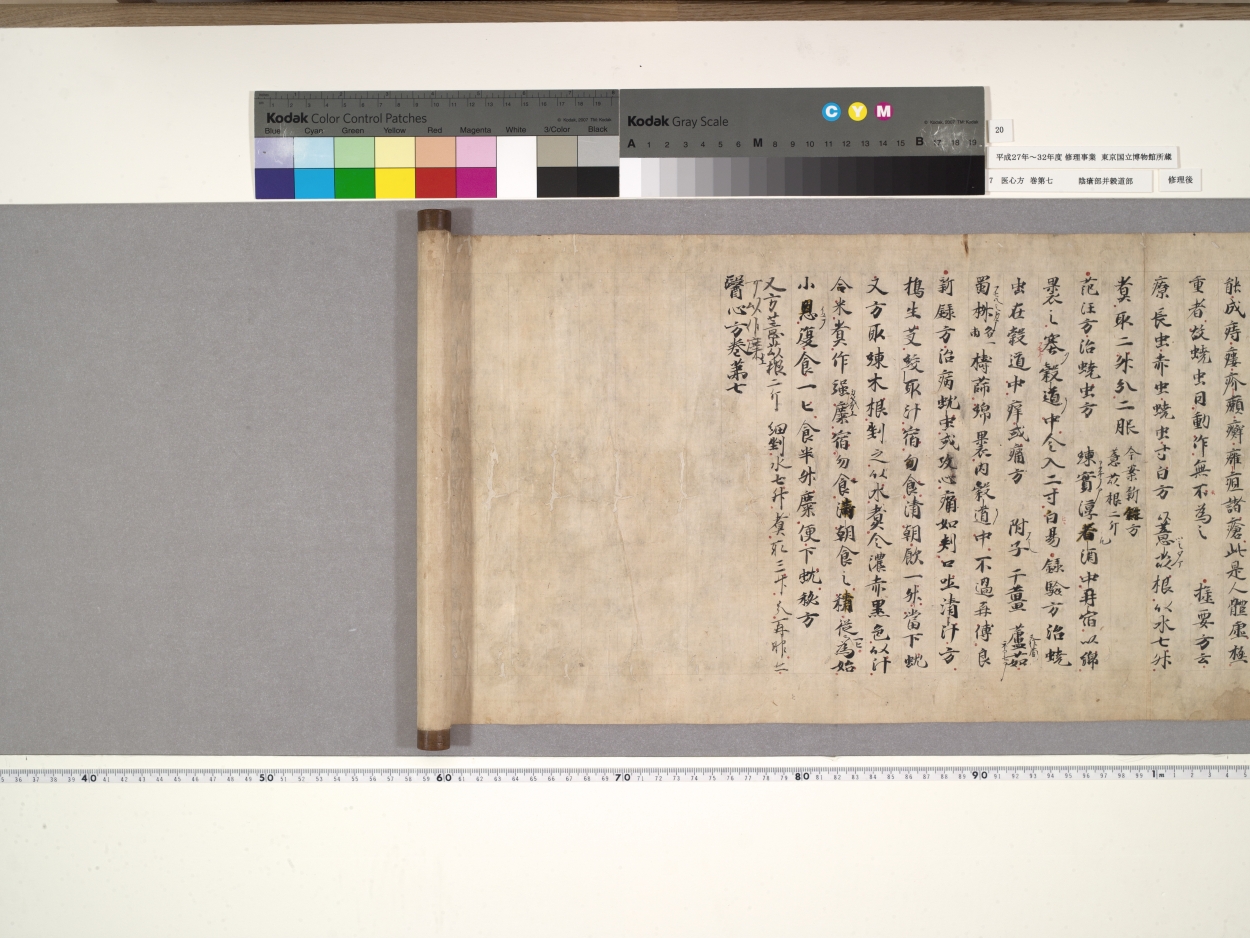 Kodak Color Control Patches
© Kodak, 2007 TM: Kodak
Blue Cyan Green Yellow Red Magenta White 3/Color Black
Kodak Gray Scale
C Y M
© Kodak, 2007 TM: Kodak
A 1 2 3 4 5 6 M 8 9 10 11 12 13 14 15 B 17 18 19
20
平成27年～32年度 修理事業 東京国立博物館所蔵
7 医心方 巻第七 陰瘡部并穀道部
修理後
能成痔瘻疥癩癬癰疽諸瘡此是人體虛極
重者故蟯虫因動作無不為之 極要方云
療長虫赤虫蟯虫寸白方 以薏苡根以水七升
煮取二升分二服 今案新錄方
薏苡根二斤
范汪方治蟯虫方 練實淳酒中再宿以綿
裹之塞穀道中令入二寸白易 錄驗方治蟯
虫在穀道中痒或痛方 附子 干薑 蘆茹
蜀椒各一 搗篩綿裹內穀道中不過再傅良
新錄方治病蚘虫或攻心痛如刺口吐清汁方
搗生艾絞取汁宿勿食清朝飲一升當下蚘
又方取練木根剉之以水煮令濃赤黑色以汁
合米煮作强糜宿勿食清朝食之精從一匕為始
小息復食一匕食半升糜便下蚘秘方
又方薏苡根二斤 細剉水七升煮取三升
醫心方卷第七
40 50 60 70 80 90 1m